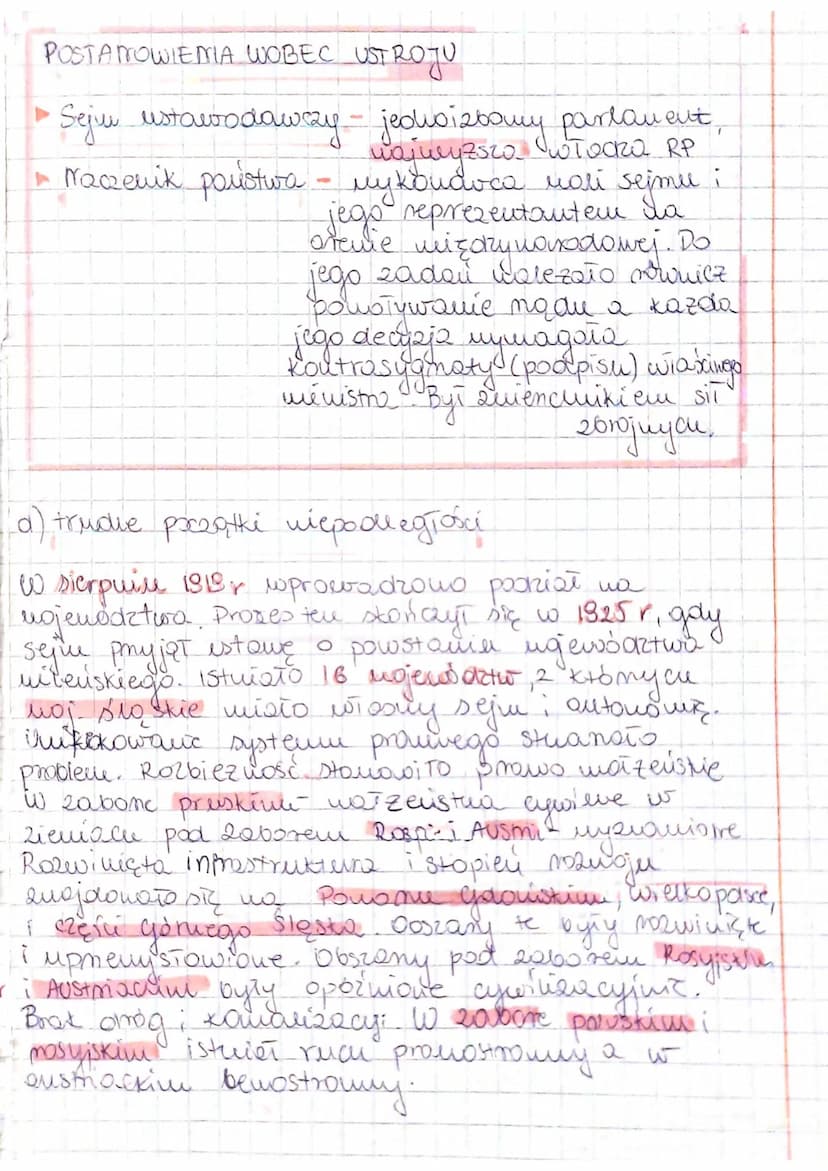 POSTANOWIENIA WOBEC USTROJU
Sejm ustawodawczy - jednoizbowy parlament,
najwyższa władza RP
Naczelnik państwa - wykonawca woli sejmu i
jego reprezentantem na
arenie międzynarodowej. Do
jego zadań należało również
powoływanie rządu a każda
jego decyzja wymagała
kontrasygnaty (podpisu) właściwego
ministra. Był zwierzchnikiem sił
zbrojnych.
d) trudne początki niepodległości
W sierpniu 1919 r wprowadzono podział na
województwa. Proces ten skończył się w 1925 r, gdy
sejm przyjął ustawę o powstaniu województwa
wileńskiego. Istniało 16 województw, z których
woj. śląskie miało własny sejm i autonomię.
Unifikowanie systemu prawnego stwarzało
problem. Rozbieżność stanowiło prawo małżeńskie
W zaborze pruskim - małżeństwa cywilne w
ziemiach pod zaborem Rosji i Austrii - wyznaniowe
Rozwinięta infrastruktura i stopień rozwoju
znajdowało się na Pomorzu Gdańskim, Wielkopolsce,
i części Górnego Śląska. Obszary te były rozwinięte
i uprzemysłowione. Obszary pod zaborem Rosyjskim
i Austriackim były opóźnione cywilizacyjnie.
Brak dróg i kanalizacji. W zaborze pruskim i
rosyjskim istniał ruch prawostronny a w
austriackim lewostronny.